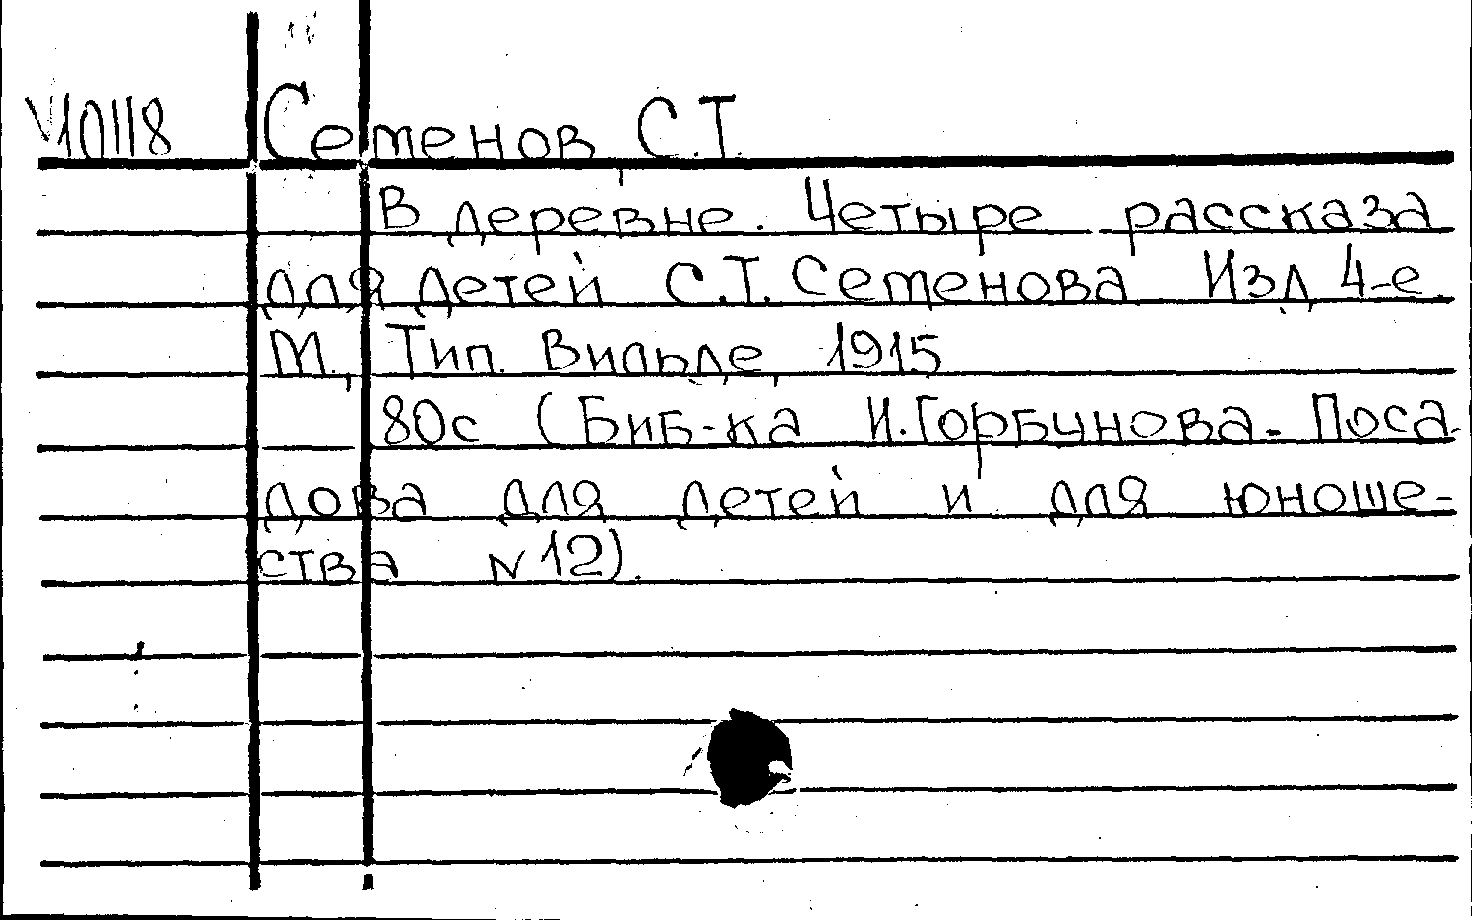 V10118 Семенов С.Т.
В деревне. Четыре рассказа
для детей С.Т. Семенова Изд 4-е.
М., Тип. Вильде, 1915
80с (Биб-ка И.Горбунова-Поса-
дова для детей и для юноше-
ства N12).